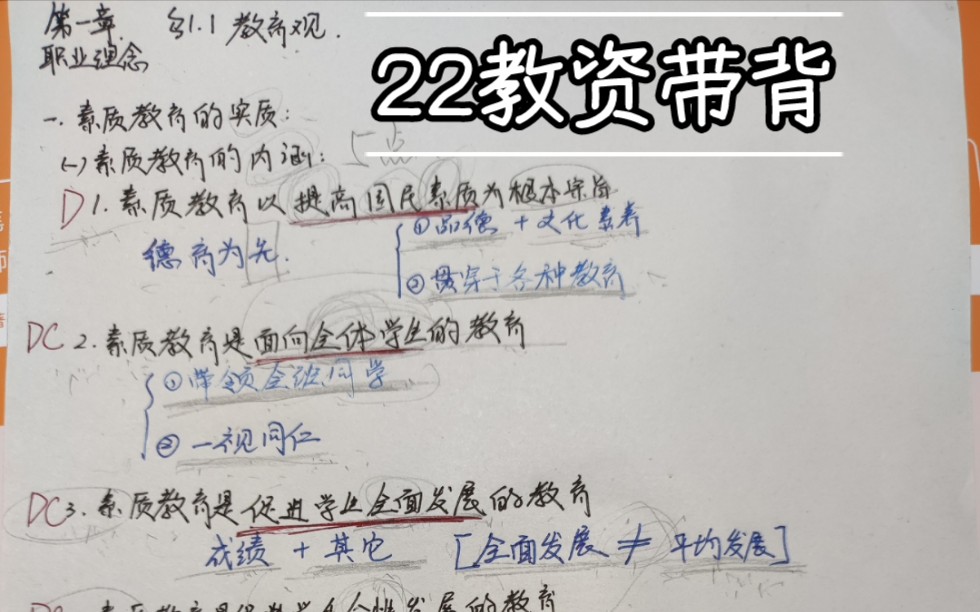 第一章 §1.1 教育观.
职业理念
22教资带背
一. 素质教育的实质:
(一) 素质教育的内涵: 5点
D 1. 素质教育以提高国民素质为根本宗旨
德育为先.
①品德 + 文化素养
②贯穿于各种教育
DC 2. 素质教育是面向全体学生的教育
①带领全班同学
②一视同仁
DC 3. 素质教育是促进学生全面发展的教育
成绩 + 其它 [全面发展 ≠ 平均发展]
素质教育是促进学生个性发展的教育